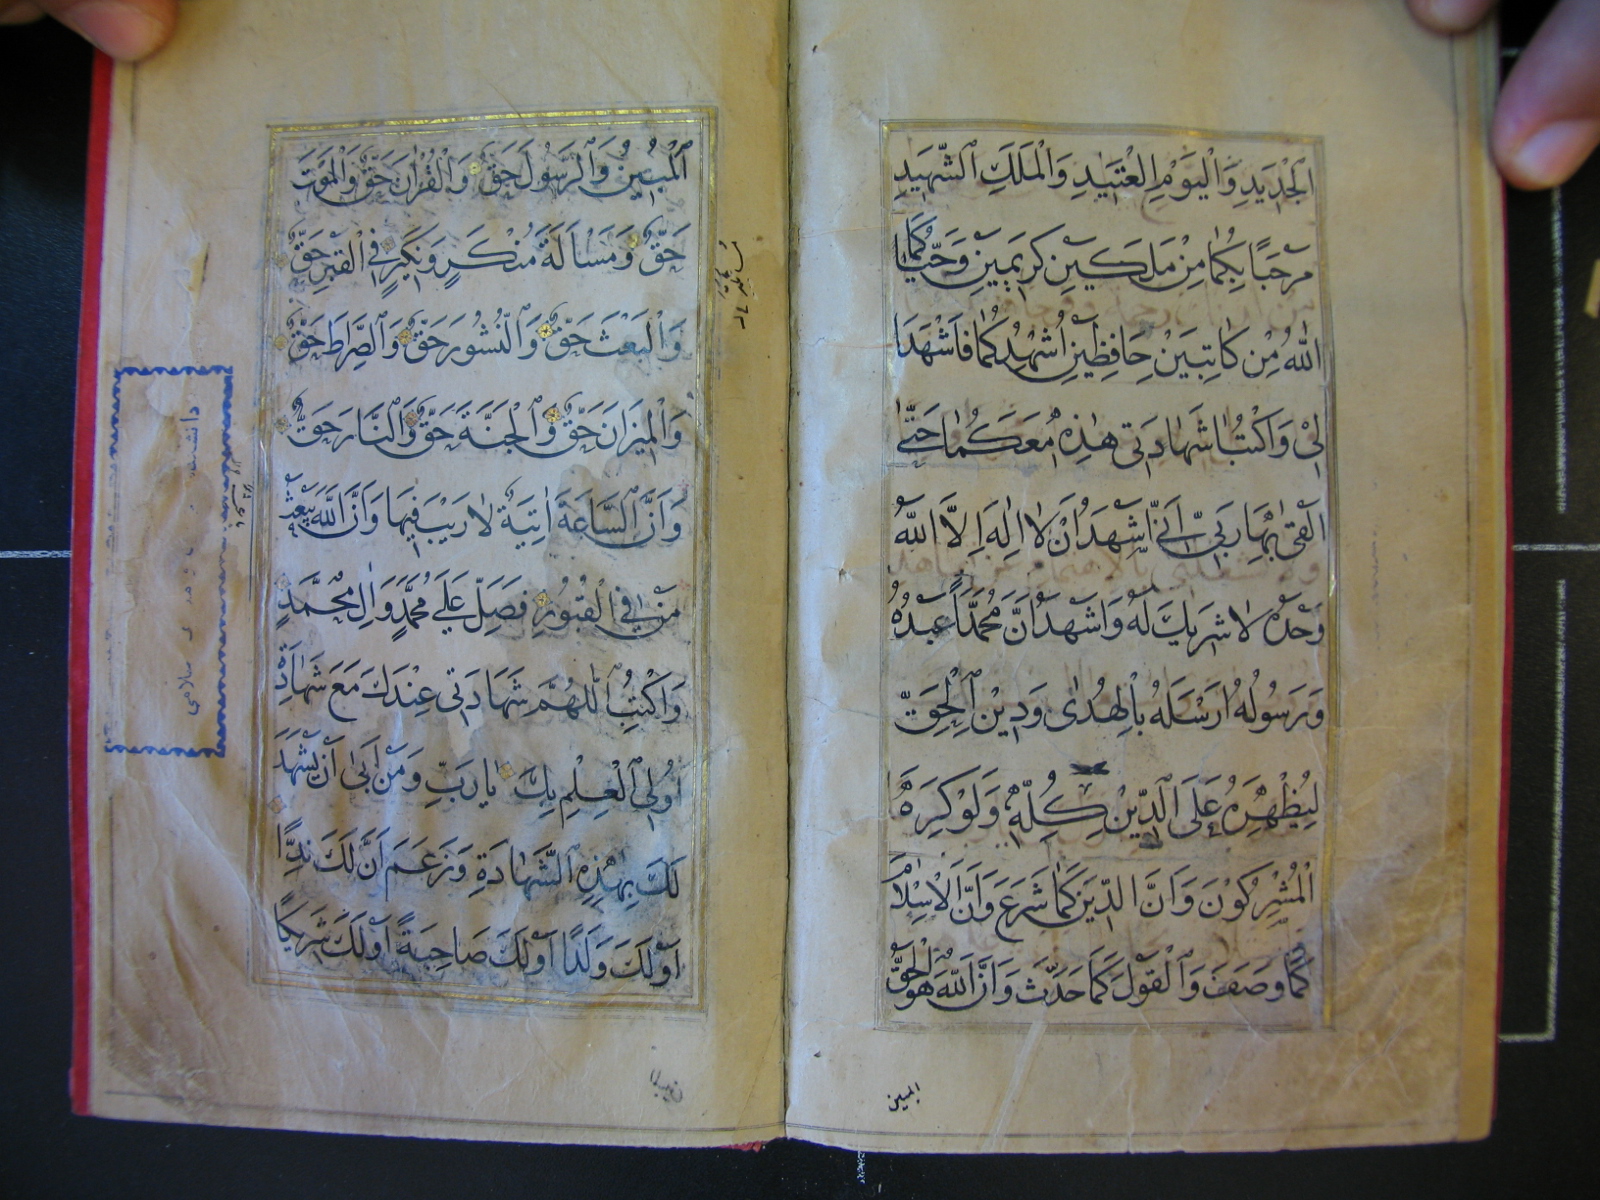 الْجَدِيدِ وَالْيَوْمِ الْعَتِيدِ وَالْمَلَكِ الشَّهِيدِ
مَرْحَبًا بِكُمَا مِنْ مَلَكَيْنِ كَرِيمَيْنِ وَحَيَّاكُمَا
اللهُ مِنْ كَاتِبَيْنِ حَافِظَيْنِ اُشْهِدُكُمَا فَاشْهَدَا
لِيْ وَاكْتُبَا شَهَادَتِي هٰذِهِ مَعَكُمَا حَتّٰى
اَلْقٰى بِهَا رَبِّي اَنِّي اَشْهَدُ اَنْ لَا اِلٰهَ اِلَّا اللهُ
وَحْدَهُ لَا شَرِيكَ لَهُ وَاَشْهَدُ اَنَّ مُحَمَّدًا عَبْدُهُ
وَرَسُولُهُ اَرْسَلَهُ بِالْهُدٰى وَدِيْنِ الْحَقِّ
لِيُظْهِرَهُ عَلَى الدِّيْنِ كُلِّهِ وَلَوْ كَرِهَ
الْمُشْرِكُوْنَ وَاَنَّ الدِّيْنَ كَمَا شَرَعَ وَاَنَّ الْاِسْلَامَ
كَمَا وَصَفَ وَالْقَوْلَ كَمَا حَدَّثَ وَاَنَّ اللهَ هُوَ الْحَقُّ
المبين
الْمُبِيْنُ وَالرَّسُولَ حَقٌّ وَالْقُرْاٰنَ حَقٌّ وَالْمَوْتَ
حَقٌّ وَمَسْاَلَةَ مُنْكَرٍ وَنَكِيْرٍ فِي الْقَبْرِ حَقٌّ
وَالْبَعْثَ حَقٌّ وَالنُّشُورَ حَقٌّ وَالصِّرَاطَ حَقٌّ
وَالْمِيْزَانَ حَقٌّ وَالْجَنَّةَ حَقٌّ وَالنَّارَ حَقٌّ
وَاَنَّ السَّاعَةَ اٰتِيَةٌ لَا رَيْبَ فِيْهَا وَاَنَّ اللهَ يَبْعَثُ
مَنْ فِي الْقُبُوْرِ فَصَلِّ عَلٰى مُحَمَّدٍ وَاٰلِ مُحَمَّدٍ
وَاكْتُبِ اللّٰهُمَّ شَهَادَتِي عِنْدَكَ مَعَ شَهَادَةِ
اُولِي الْعِلْمِ بِكَ يَا رَبِّ وَمَنْ اَبٰى اَنْ يَشْهَدَ
لَكَ بِهٰذِهِ الشَّهَادَةِ وَزَعَمَ اَنَّ لَكَ نِدًّا
اَوْ لَكَ وَلَدًا اَوْ لَكَ صَاحِبَةً اَوْ لَكَ شَرِيْكًا